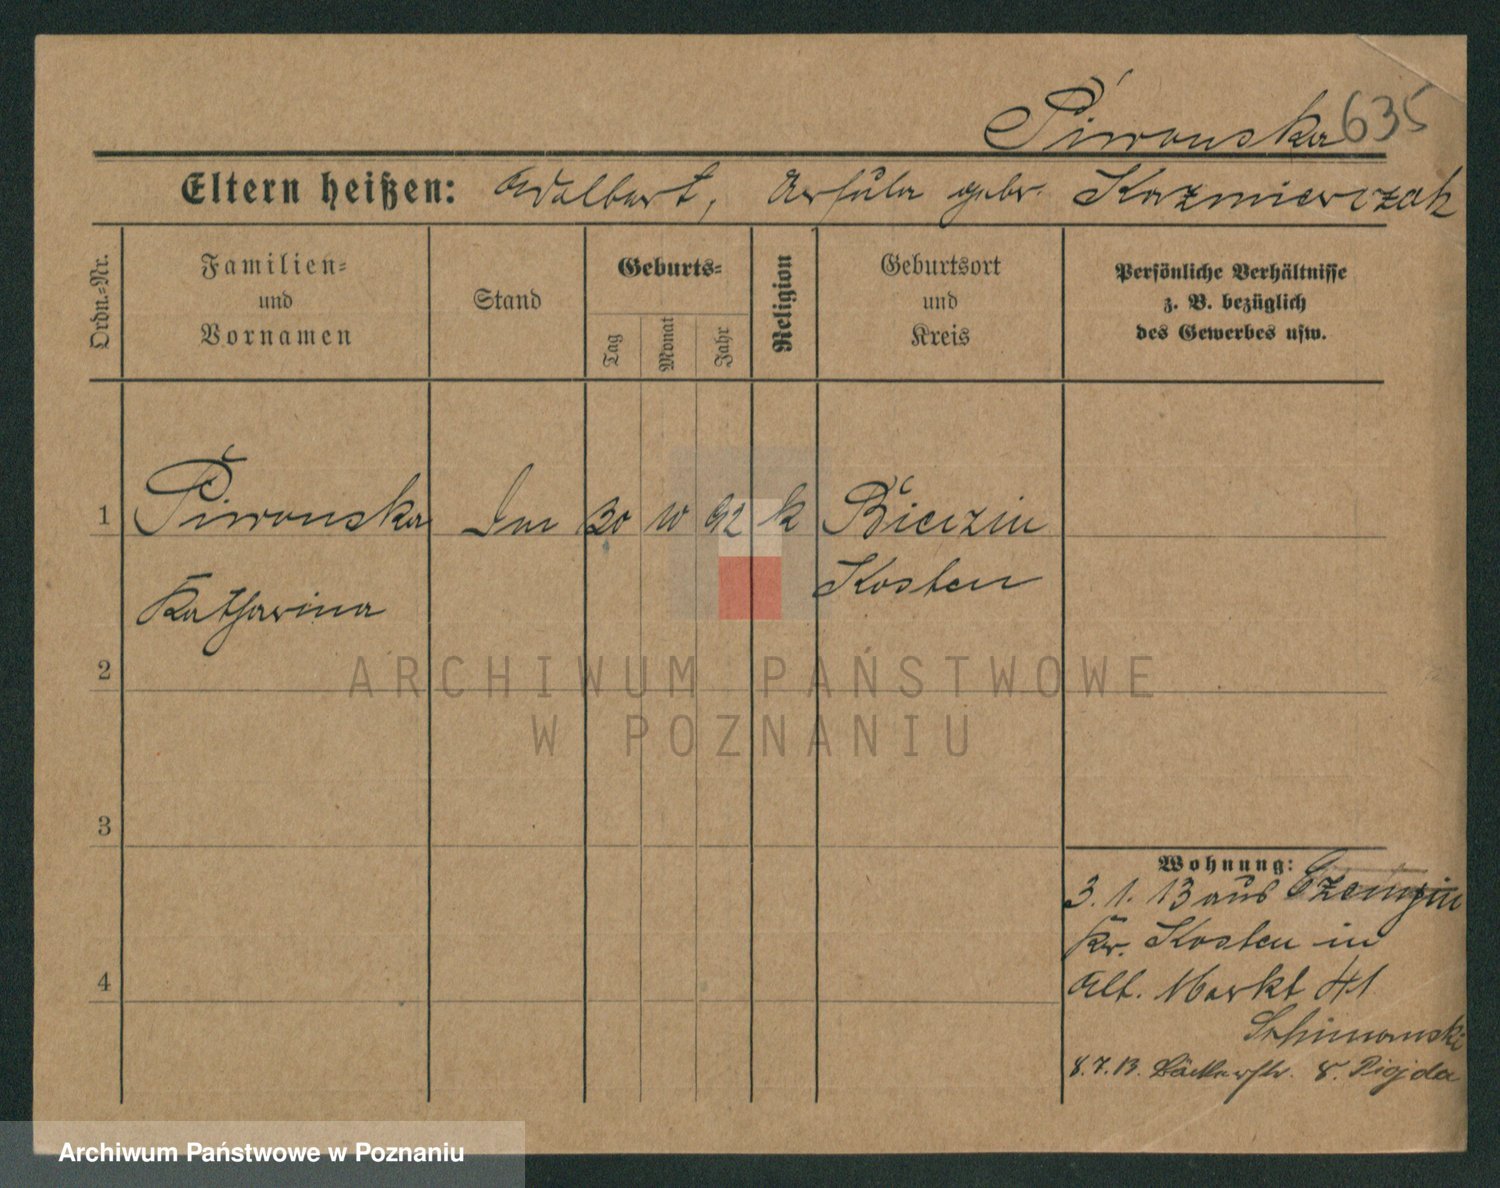 Piwonska 635
Eltern heißen: Adalbert, Ursula gebr. Kazmierczak
Ordn.-Nr.
Familien-
und
Vornamen
Stand
Geburts-
Tag
Monat
Jahr
Religion
Geburtsort
und
Kreis
Persönliche Verhältnisse
z. B. bezüglich
des Gewerbes usw.
1 Piwonska 30 10 92 k
Kosten
Katharina
2
ARCHIWUM PAŃSTWOWE
W POZNANIU
3
Wohnung:
3. 1. 13 aus Czempin
Kr. Kosten in
4 Alt. Markt 41
8.7.13. Bäckerstr. 8.
Archiwum Państwowe w Poznaniu